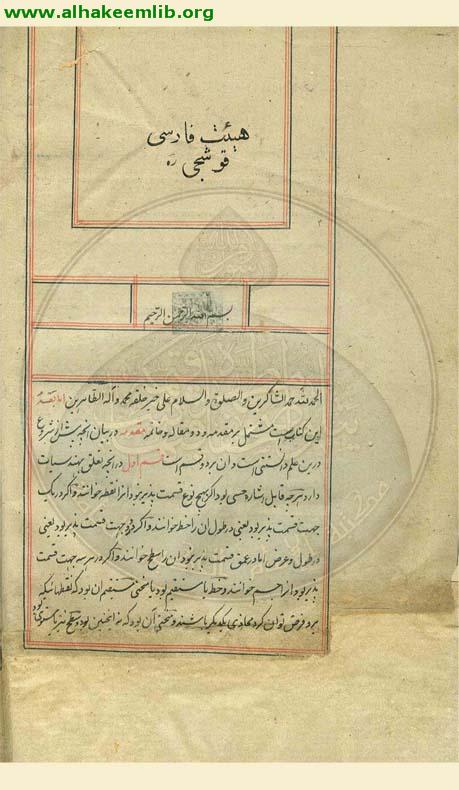 www.alhakeemlib.org
هیئت فارسی
قوشجی ره
بسم الله الرحمن الرحیم
الحمد لله حمد الشاکرین و الصلوة و السلام علی خیر خلقه محمد و آله الطاهرین اما بعد
این کتابیست مشتمل بر مقدمه و دو مقاله و خاتمه مقدمه در بیان آنچه پیش از شروع
درین علم دانستنی است و آن بر دو قسم است قسم اول در آنچه تعلق بهندسیات
دارد هر چه قابل اشاره حسی بود اگر بهیچ نوع قسمت پذیر نبود آنرا نقطه خوانند و اگر در یک
جهت قسمت پذیر بود یعنی در طول آن را خط خوانند و اگر در دو جهت قسمت پذیر بود یعنی
در طول و عرض اما در عمق قسمت پذیر نبود آن را سطح خوانند و اگر در هر سه جهت قسمت
پذیر بود آنرا جسم خوانند و خط یا مستقیم بود یا منحنی مستقیم آن بود که نقطها که
برو فرض توان کرد محاذی یکدیگر باشند و منحنی آن بود که نه اینچنین بود و سطح نیز یا مستوی بود